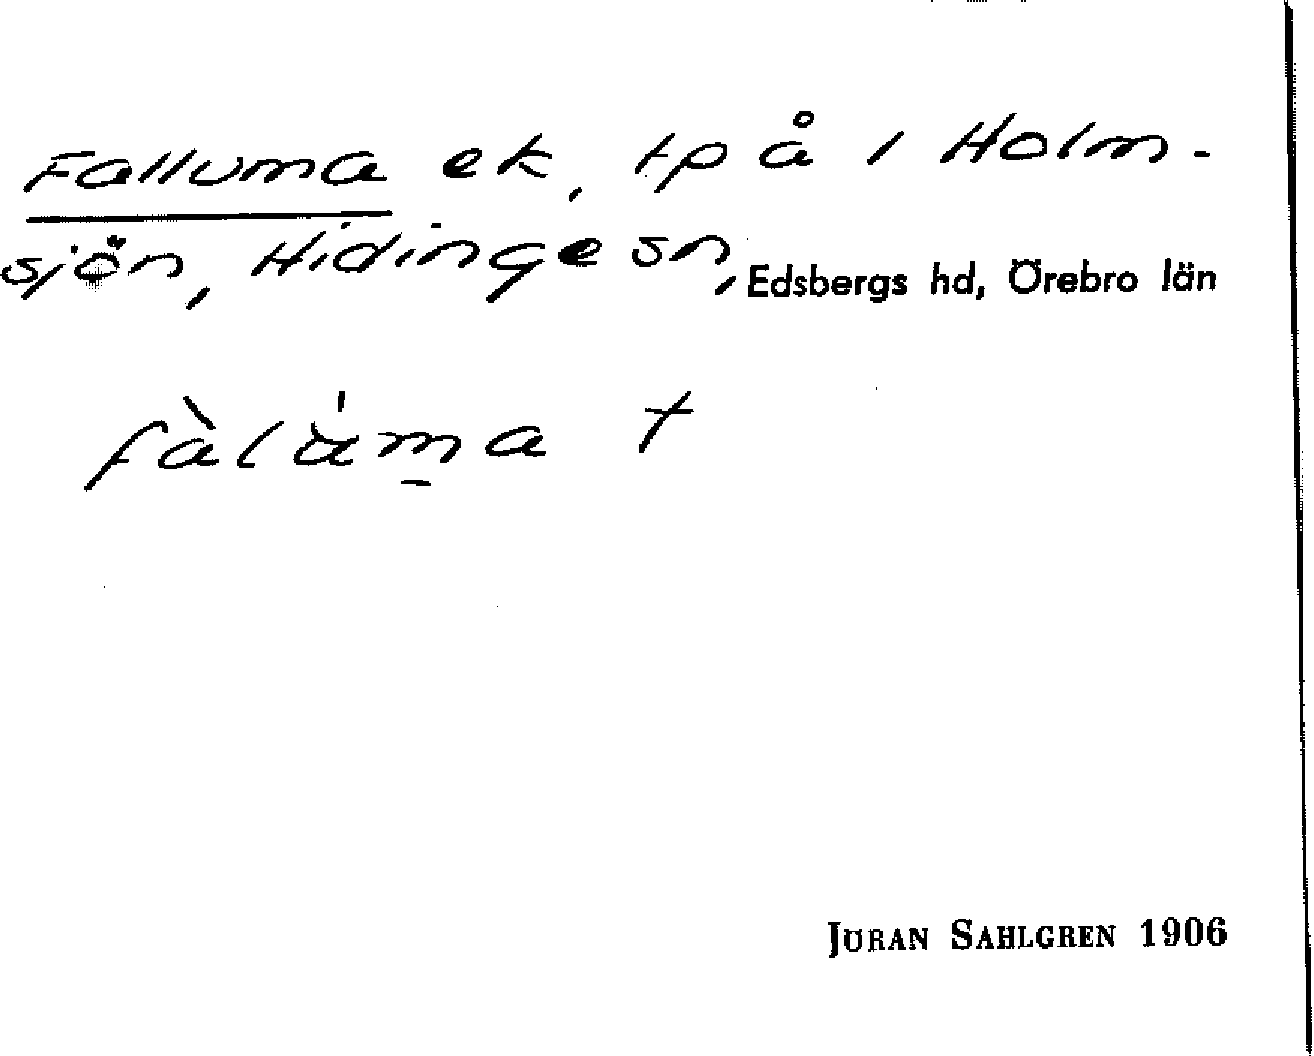 Falluma ek, tp å i Holm-
sjön, Hidinge sn, Edsbergs hd, Örebro län
fàlu̇ma †
JÖRAN SAHLGREN 1906